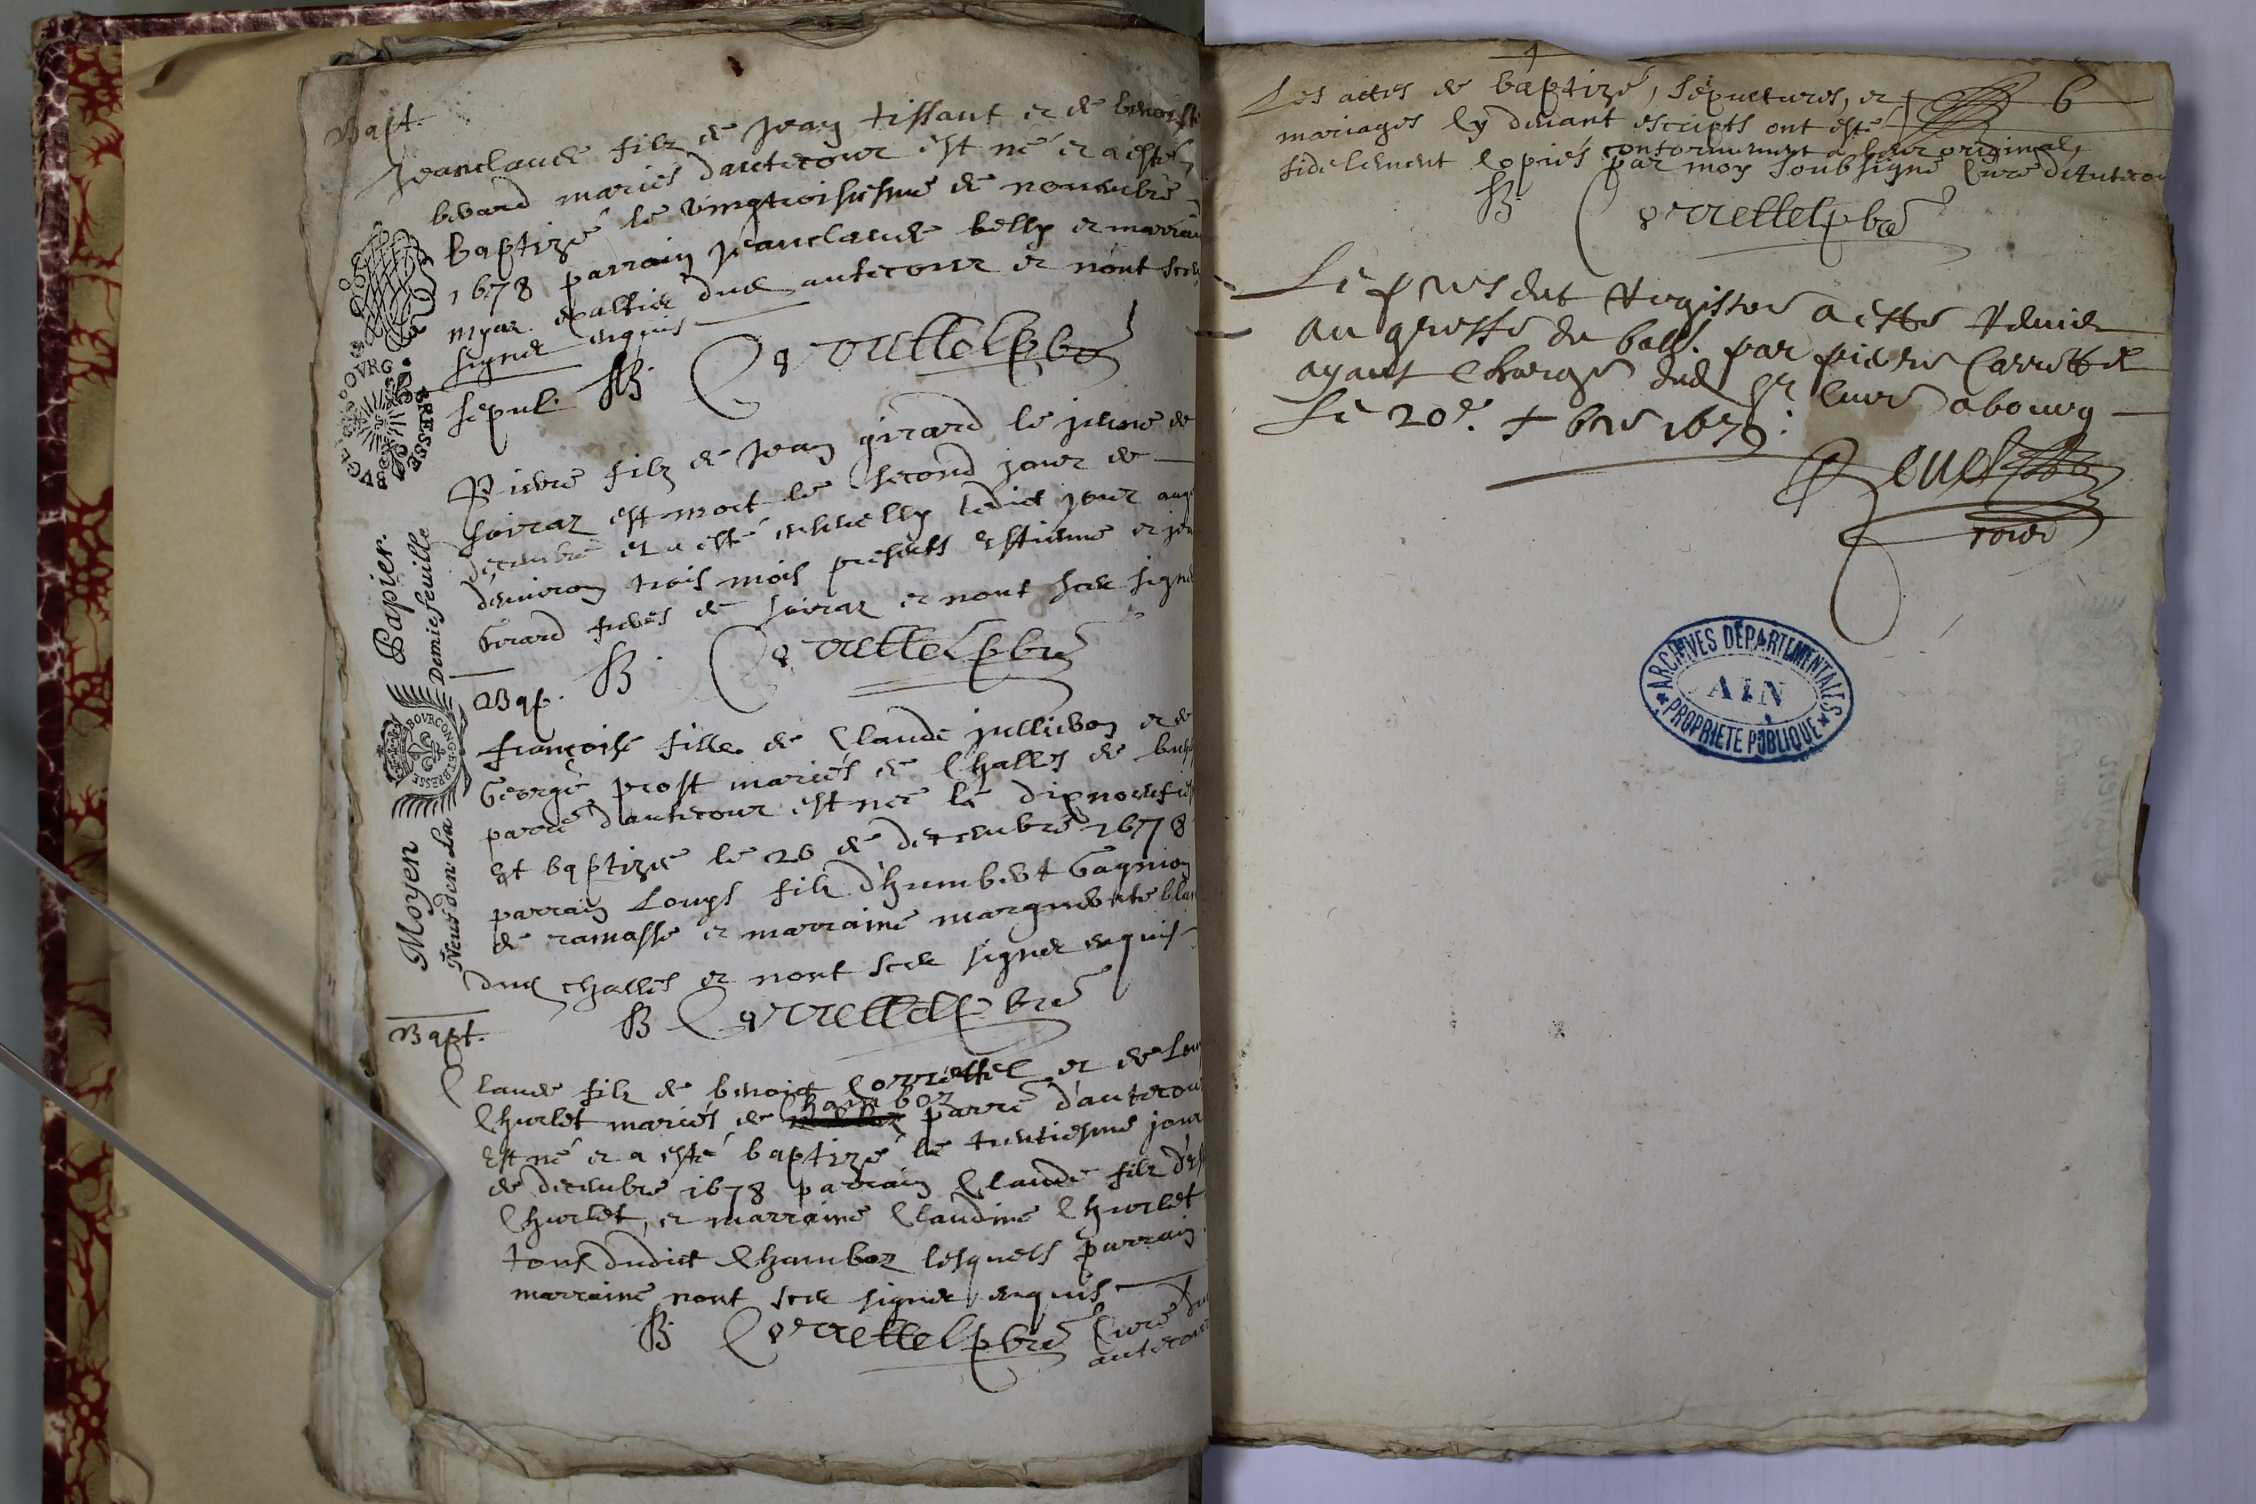 Bapt.
Jeanclaude filz de Jean tissant et de benoiste
bevard mariés dautecour est né et a esté
baptizé le vingtroisiesme de novembre
1678 parrain jeanclaude belly et marrai
myar. dud autecour et nont sceu
signer enquis
B. Correttel pbre
sepul.
Pierre filz de Jean girard le jeune de
soiraz est mort le second jour de
decembre et a esté ensevelly ledict jour aagé
denviron trois mois presents estienne et jea
Girard freres de soiraz et nont sceu signer
B. Correttel pbre
Bap.
françoise fille de Claude jullieron et de
George prost mariés de Challes de
parre d'autecour est nee le dixnoeufie
et baptizee le 20 de decembre 1678
parrain Louys filz d'humbert Gagnion
de ramasse et marraine marguerite bla
dud challes et nont sceu signer enquis
B Correttel pbre
Bapt.
Claude filz de benoict Correttel et de
Churlet mariés de Chamboz parre d'autecour
est né et a esté baptizé le trentiesme jour
de decembre 1678 parrain Claude filz d'es
Churlet, et marraine Claudine Churlet
tous dudict Chamboz lesquels parrain
marraine nont sceu signer enquis
B. Correttel pbre Curé du
autecour
Moyen Papier.
Neuf den. La Demie feuille
BOURGONG. ET BRESSE
BOVRG BVGE BRESSE
Les actes de baptize, sepultures, et 6
mariages cy devant escripts ont esté
fidelement copiés conformement a leur original,
par moy soubsigné Curé d'Autecou
B. Correttel pbre
Le present Registre a esté Remis
au greffe du ball. par pierre Correttel
ayant Charge dud Sr Curé a bourg
Le 20e. + bre 1679.
ARCHIVES DÉPARTEMENTALES
AIN
PROPRIÉTÉ PUBLIQUE